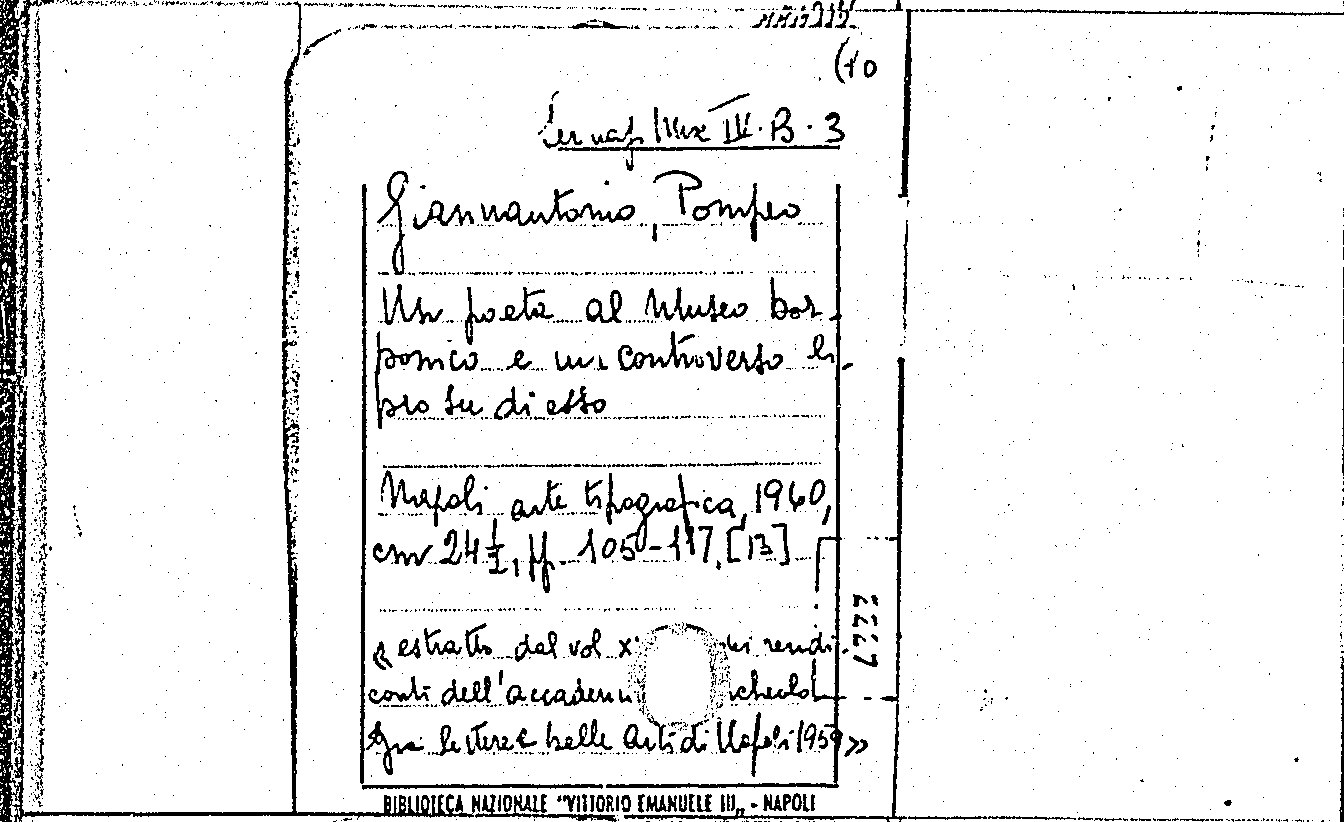 (10
IV. B. 3
Giannantonio, Pompeo
Un poeta al Museo bor-
bonico e un controverso li-
bro su di esso
Napoli arte tipografica, 1960,
cm 24 ½, pp. 105-117. [13]
« estratto dal vol rendi-
conti dell'accademi cheolo
gia lettere e belle arti di Napoli 1959 »
BIBLIOTECA NAZIONALE "VITTORIO EMANUELE III„ - NAPOLI